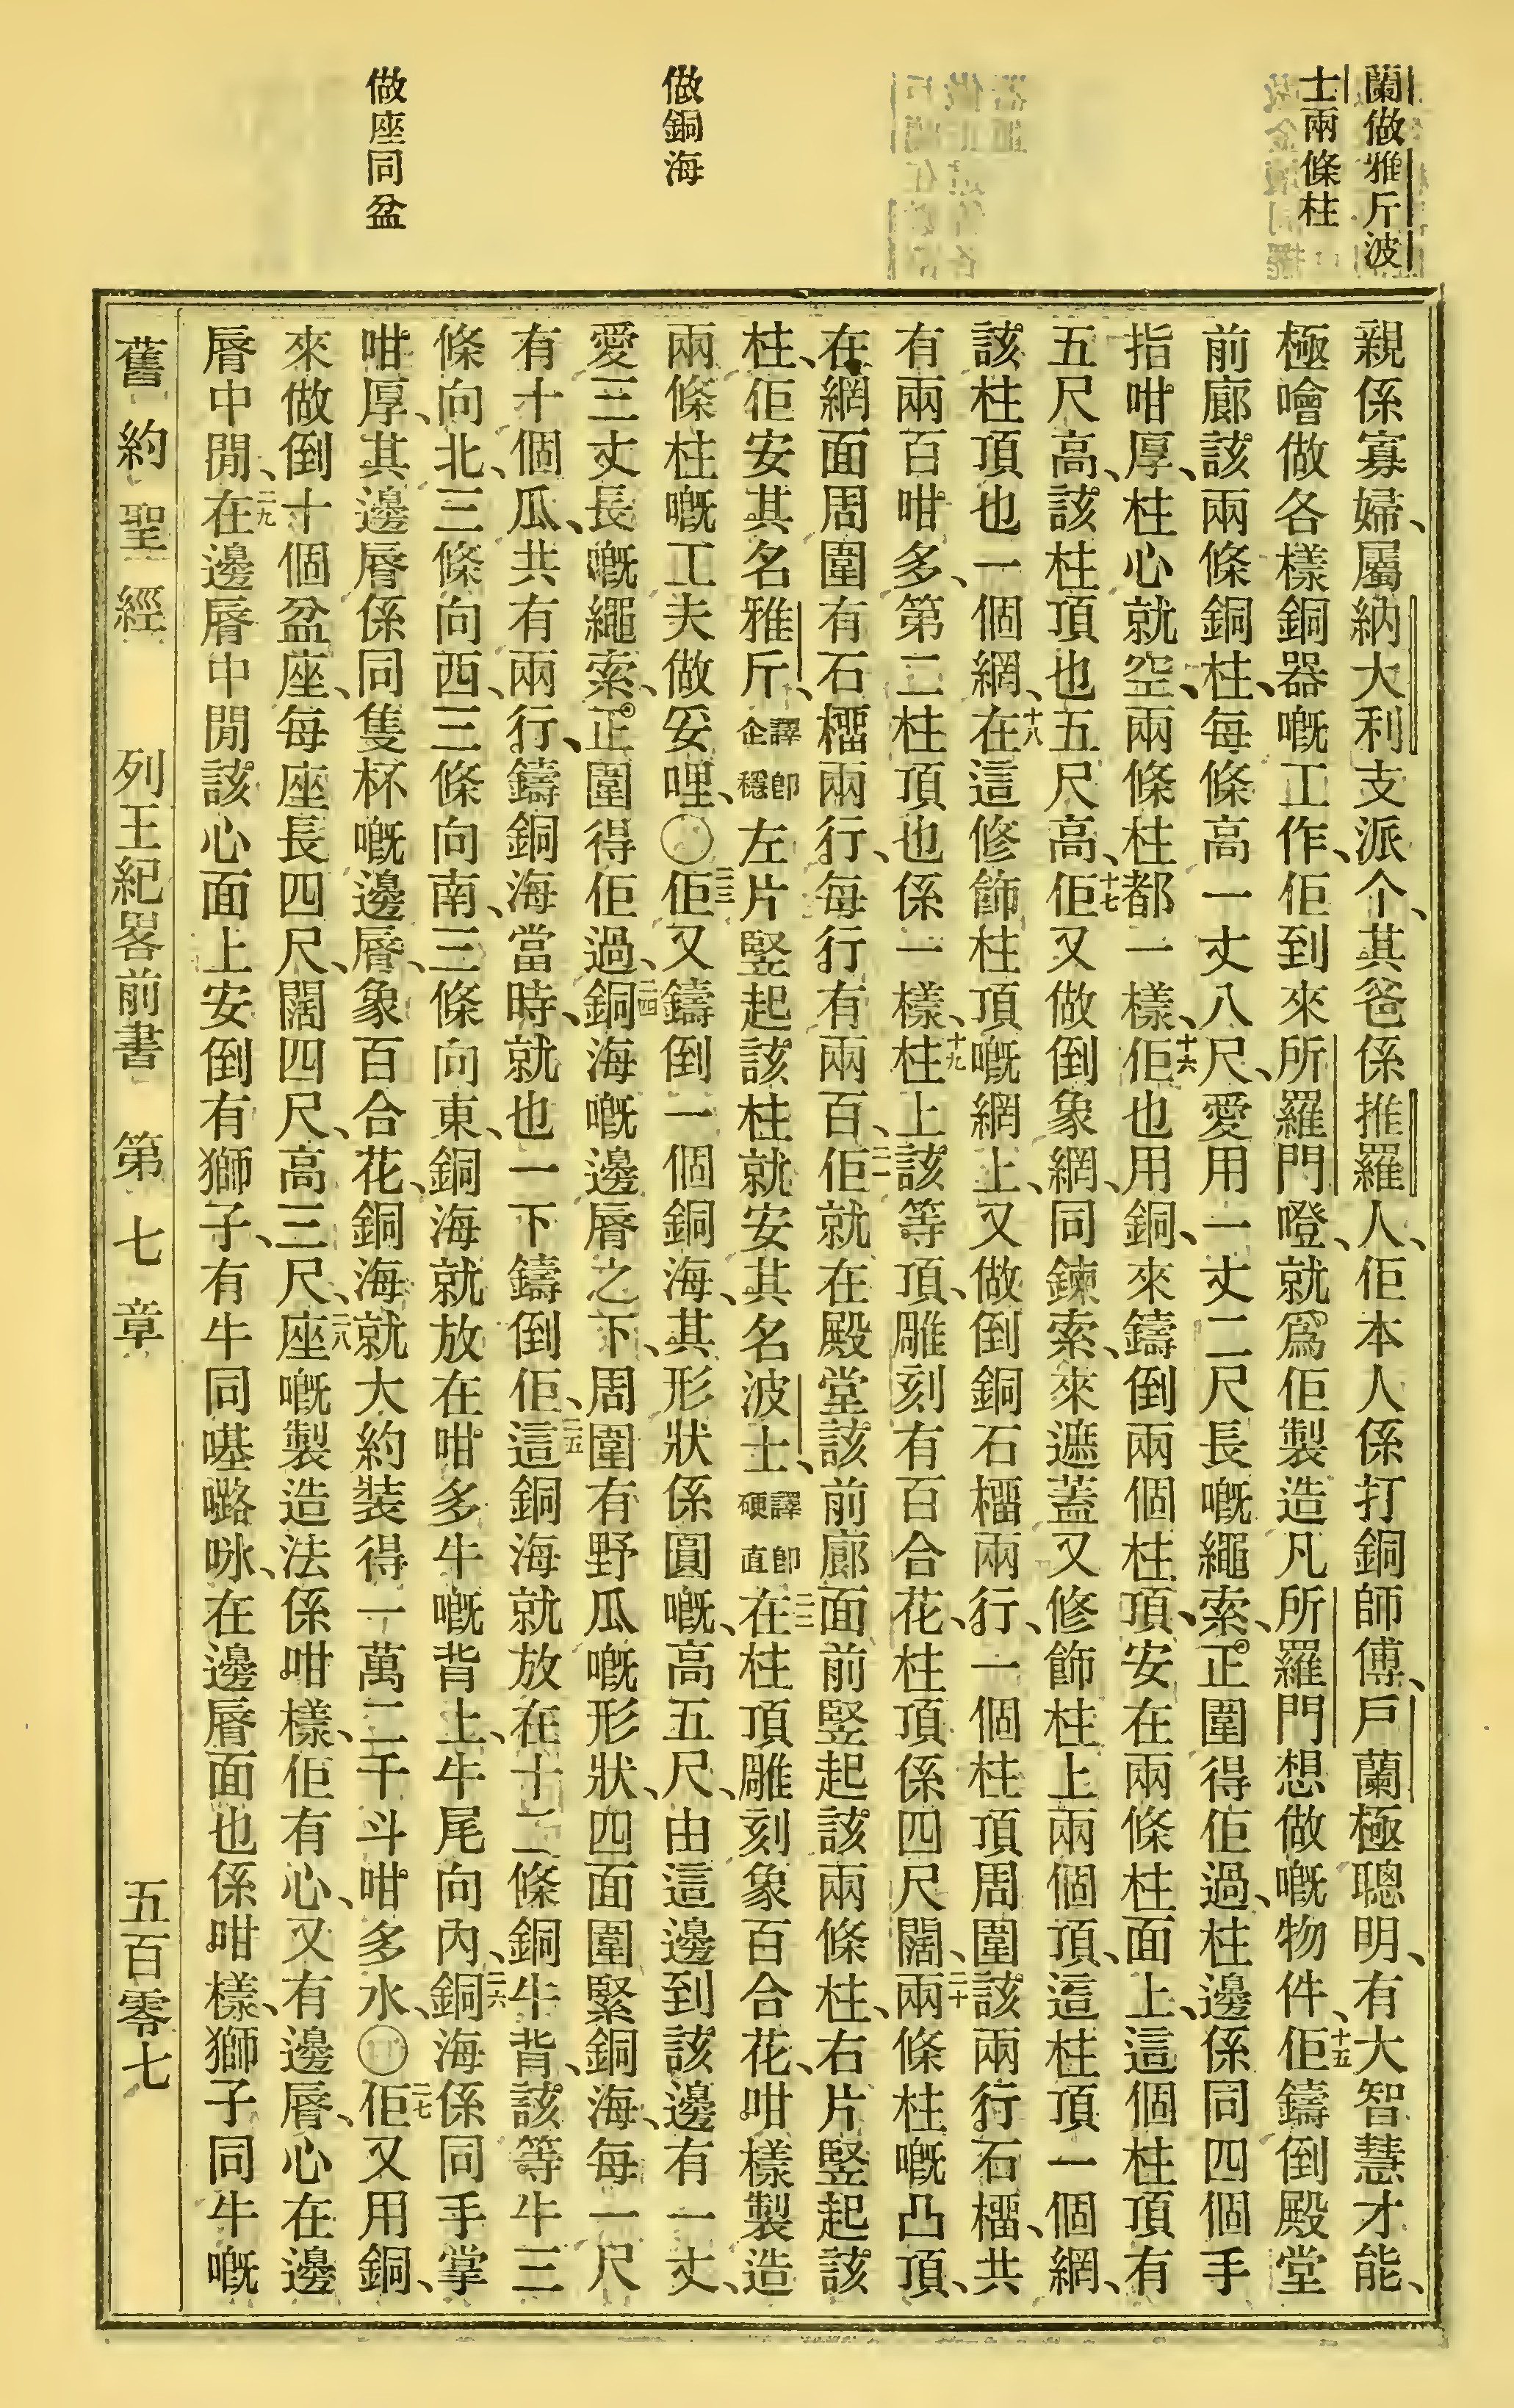 蘭做雅斤波
士兩條柱
做銅海
做座同盆
親係寡婦、屬納大利支派个、其爸係推羅人、佢本人係打銅師傅、戶蘭極聰明、有大智慧才能、
極噲做各樣銅器嘅工作、佢到來所羅門嶝、就爲佢製造凡所羅門想做嘅物件、十五佢鑄倒殿堂
前廊該兩條銅柱、每條高一丈八尺、愛用一丈二尺長嘅繩索、正圍得佢過、柱邊係同四個手
指咁厚、柱心就空、兩條柱都一樣、十六佢也用銅、來鑄倒兩個柱頂、安在兩條柱面上、這個柱頂有
五尺高、該柱頂也五尺高、十七佢又做倒象網、同鍊索、來遮蓋又修飾柱上兩個頂、這柱頂一個網、
該柱頂也一個網、十八在這修飾柱頂嘅網上、又做倒銅石橊兩行、一個柱頂周圍該兩行石橊、共
有兩百咁多、第二柱頂也係一樣、十九柱上該等頂、雕刻有百合花、柱頂係四尺闊、二十兩條柱嘅凸頂、
在網面周圍有石橊兩行、每行有兩百、二一佢就在殿堂該前廊面前竪起該兩條柱、右片竪起該
柱、佢安其名雅斤、譯卽企穩左片竪起該柱就安其名波士、譯卽硬直二二在柱頂雕刻象百合花、咁樣製造
兩條柱嘅工夫做妥哩、〇二三佢又鑄倒一個銅海、其形狀係圓嘅、高五尺、由這邊到該邊有一丈、
愛三丈長嘅繩索、正圍得佢過、二四銅海嘅邊唇之下、周圍有野瓜嘅形狀、四面圍緊銅海、每一尺
有十個瓜、共有兩行、鑄銅海當時、就也一下鑄倒佢、二五這銅海就放在十二條銅牛背、該等牛三
條向北、三條向西、三條向南、三條向東、銅海就放在咁多牛嘅背上、牛尾向內、二六銅海係同手掌
咁厚、其邊唇係同隻杯嘅邊唇、象百合花、銅海就大約裝得一萬二千斗咁多水、〇二七佢又用銅、
來做倒十個盆座、每座長四尺、闊四尺、高三尺、二八座嘅製造法係咁樣、佢有心、又有邊唇、心在邊
唇中閒、二九在邊唇中閒該心面上安倒有獅子、有牛同𠺝嚕咏、在邊唇面也係咁樣、獅子同牛嘅
舊約聖經 列王紀畧前書 第七章 五百零七